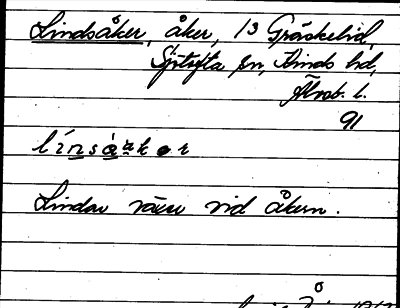 Lindsåker, åker, 13 Gräskelid,
Sjötofta sn, Kinds hd,
Älvsb. l.
91
línsàker
Lindar växer vid åkern.